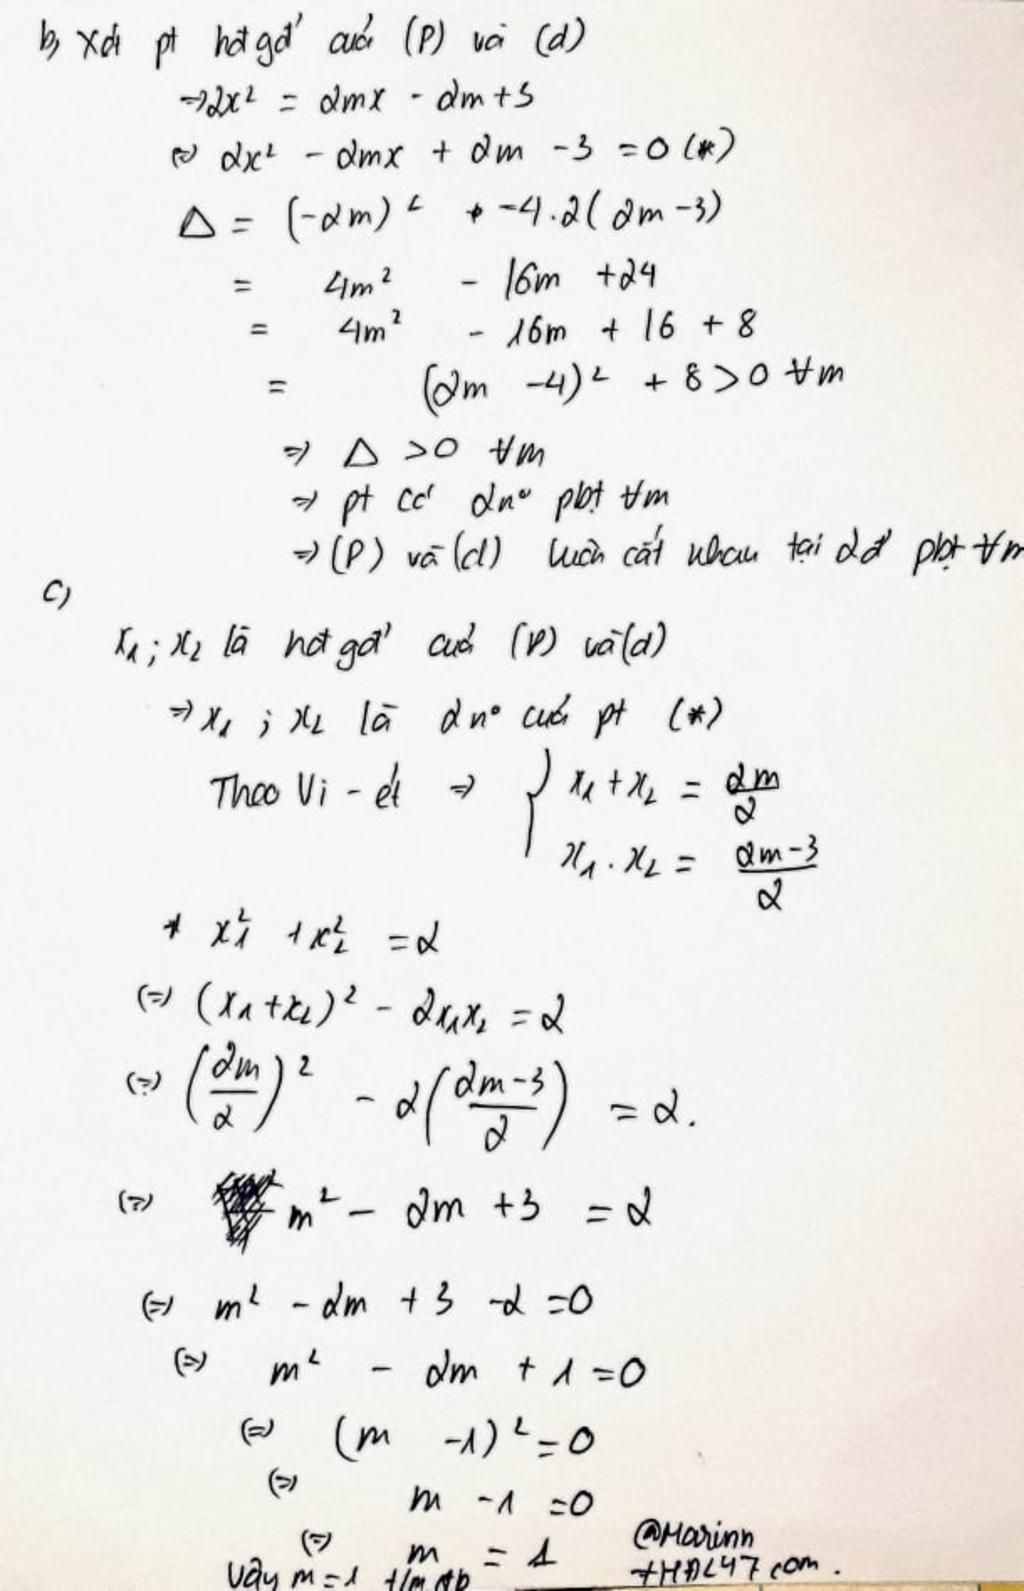 b, Xét pt hđgđ' của (P) và (d)
=> 2x² = 2mx - 2m+3
(=) 2x² - 2mx + 2m - 3 = 0 (*)
Δ = (-2m)² + -4.2(2m-3)
= 4m² - 16m + 24
= 4m² - 16m + 16 + 8
= (2m - 4)² + 8 > 0 ∀m
=> Δ > 0 ∀m
=> pt có 2n° pbt ∀m
=> (P) và (d) luôn cắt nhau tại 2đ' pbt ∀m
c,
x₁; x₂ là hđgđ' của (P) và (d)
=> x₁ ; x₂ là 2n° của pt (*)
Theo Vi-ét => { x₁ + x₂ = 2m/2
x₁ . x₂ = (2m-3)/2
* x₁² + x₂² = 2
(=) (x₁+x₂)² - 2x₁x₂ = 2
(=) (2m/2)² - 2((2m-3)/2) = 2.
(=) m² - 2m + 3 = 2
(=) m² - 2m + 3 - 2 = 0
(=) m² - 2m + 1 = 0
(=) (m - 1)² = 0
(=) m - 1 = 0
(=) m = 1
@Marinn
Vậy m = 1 t/m đb
tHĐL47 com.